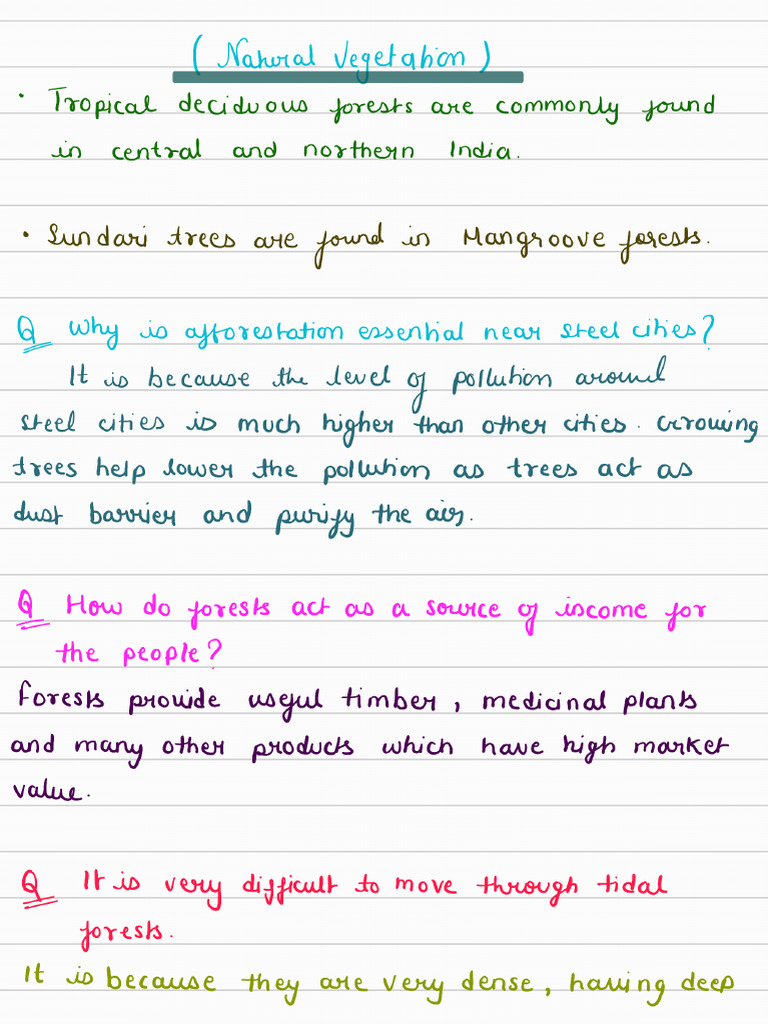 (Natural Vegetation)
• Tropical deciduous forests are commonly found
in central and northern India.
• Sundari trees are found in Mangroove forests.
Q Why is afforestation essential near steel cities?
It is because the level of pollution around
steel cities is much higher than other cities. Growing
trees help lower the pollution as trees act as
dust barrier and purify the air.
Q How do forests act as a source of income for
the people?
Forests provide useful timber, medicinal plants
and many other products which have high market
value.
Q It is very difficult to move through tidal
forests.
It is because they are very dense, having deep